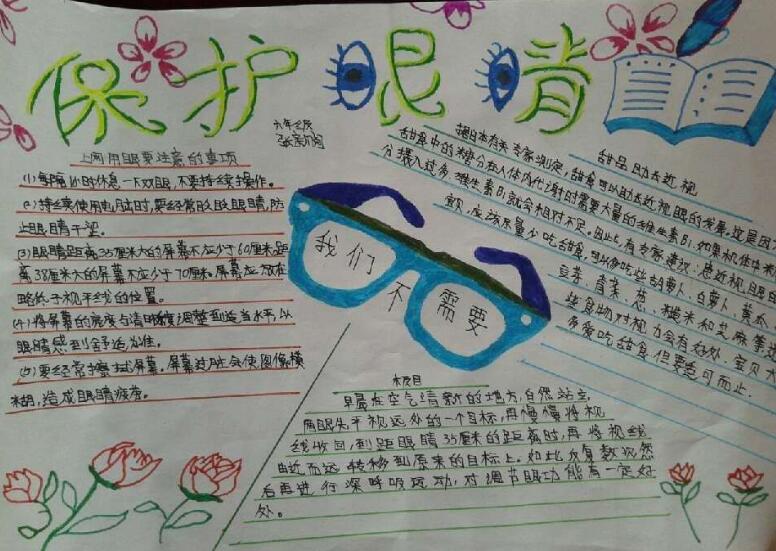 保护眼睛
六年级
上网用眼要注意的事项
(1)每隔1小时休息一下双眼,不要持续操作。
(2)持续使用电脑时,要经常眨眨眼睛,防
止眼睛干涩。
(3)眼睛距离35厘米大的屏幕不应少于60厘米,距
离38厘米大的屏幕不应少于70厘米。屏幕应放在
略低于视平线的位置。
(4)将屏幕的亮度与清晰度调整到适当水平,以
眼睛感到舒适为准。
(5)要经常擦拭屏幕。屏幕过脏会使图像模
糊,造成眼睛疲劳。
我们
不
需要
甜品助去近视
据日本有关专家测定,甜食可以助去近视眼的发展。这是因
甜食中的糖分在人体内代谢时需要大量的维生素B1,如果机体中糖
分摄入过多,维生素B1就会相对不足。因此,有专家建议:患近视眼的
应该尽量少吃甜食,可以多吃些胡萝卜、白萝卜、黄瓜
豆芽、青菜、葱、糙米和芝麻等
些食物对视力会有好处,宝贝
爱吃甜食但要适可而止。
极目
早晨在空气清新的地方,自然站立,
两眼先平视远处的一个目标,再慢慢将视
线收回,到距眼睛35厘米的距离时,再将视线
由近而远转移到原来的目标上。如此反复数次然
后再进行深呼吸运动,对调节眼功能有一定好
处。